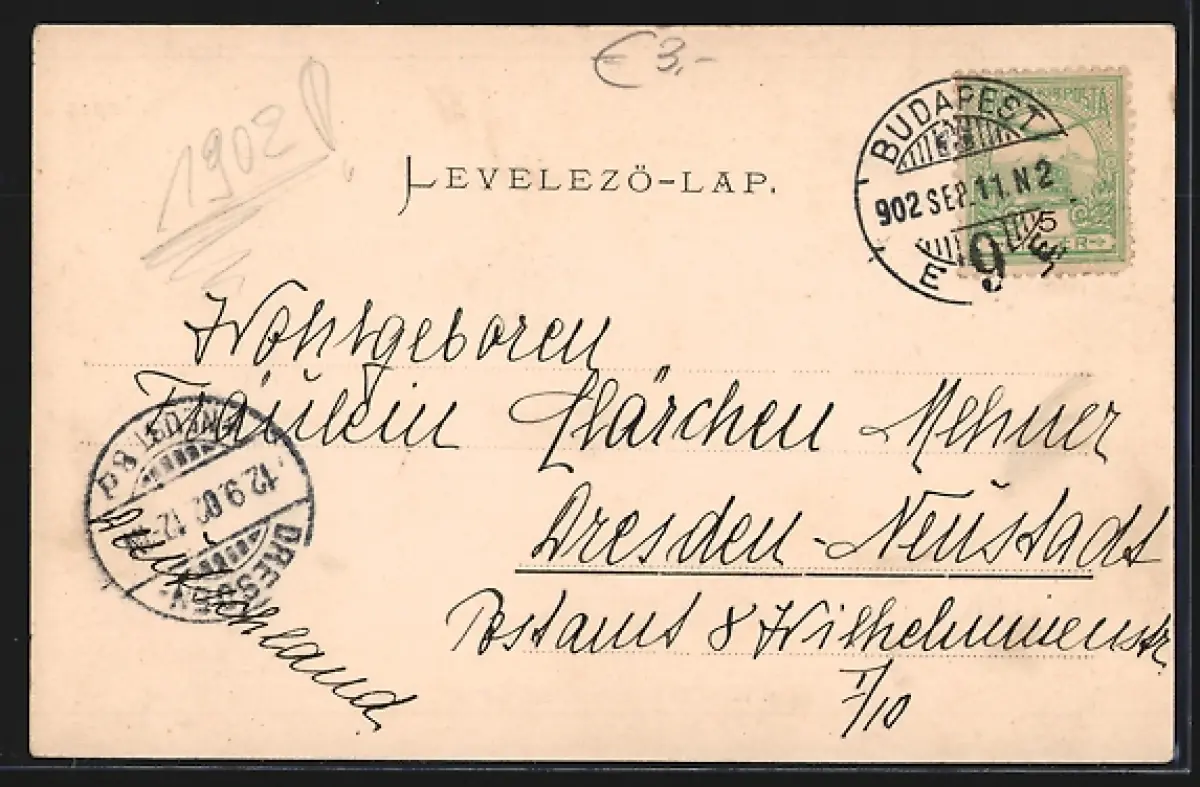 € 3,-
1902
LEVELEZŐ-LAP.
POSTA
5
BUDAPEST
902 SEP. 11. N 2
E 9
Wohlgeboren
Fräulein Clärchen Mehner
Dresden-Neustadt
Postamt 8 Wilhelminenstr
I/10
Deutschland
DRESDEN-NEUST. 8d
12.9.02. 12-